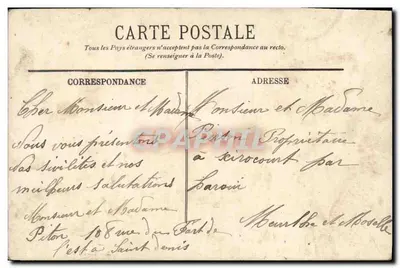 CARTE POSTALE
Tous les Pays étrangers n'acceptent pas la Correspondance au recto.
(Se renseigner à la Poste).
CORRESPONDANCE
Cher Monsieur et Madame
Nous vous présentons
nos sivilités et nos
meilleurs salutations
Monsieur et Madame
Piton 108 rue du Fort de
l'est à Saint denis
ADRESSE
Monsieur et Madame
Piton Propriétaire
à Xirocourt par
Haroué
Meurthe et Moselle